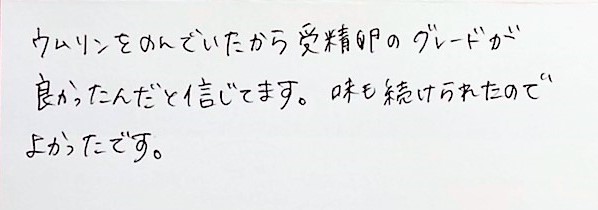 ウムリンをのんでいたから受精卵のグレードが
良かったんだと信じてます。味も続けられたので
よかったです。